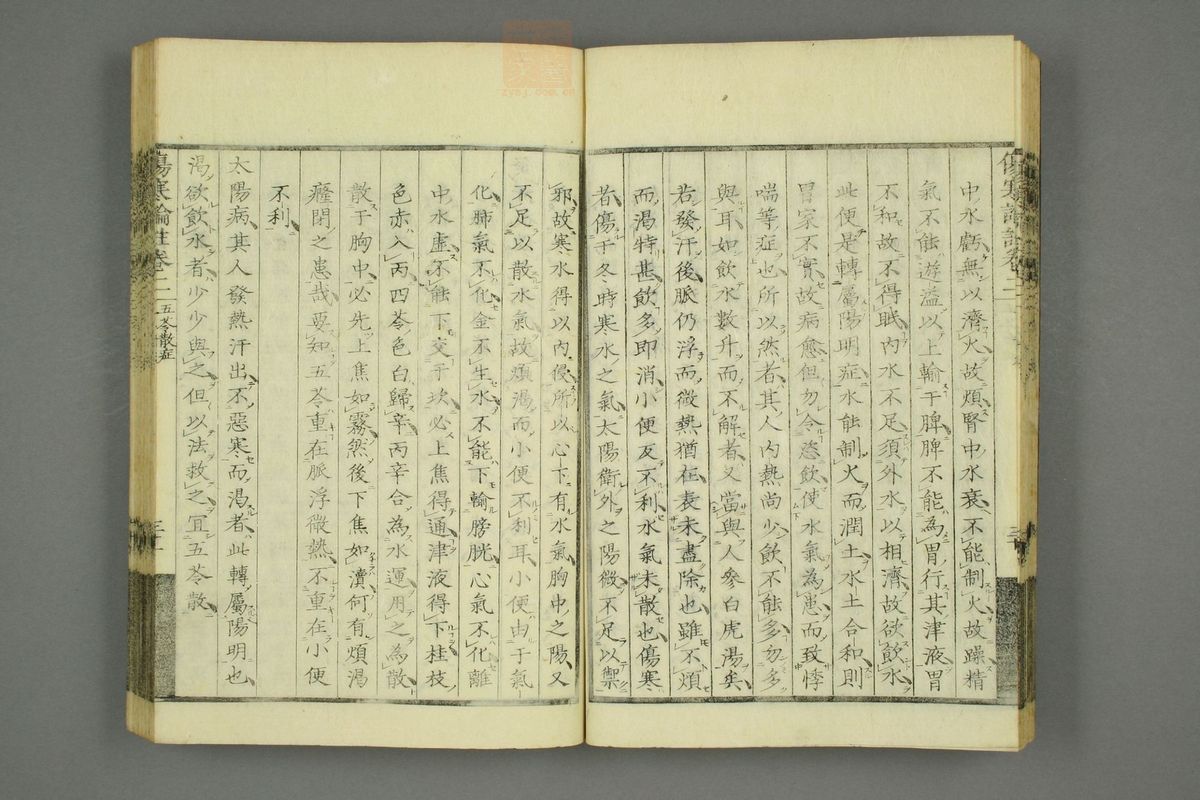 中水虧無以濟火故煩腎中水衰不能制火故躁精
氣不能遊溢以上輸于脾脾不能為胃行其津液胃
不和故不得眠內水不足須外水以相濟故欲飲水
此便是轉屬陽明症水能制火而潤土水土合和則
胃家不實故病愈但勿令恣飲使水氣為患而致悸
喘等症也所以然者其人內熱尚少飲不能多勿多
與耳如飲水數升而不解者又當與人參白虎湯矣
若發汗後脈仍浮而微熱猶在表未盡除也雖不煩
而渴特甚飲多即消小便反不利水氣未散也傷寒
者傷于冬時寒水之氣太陽衛外之陽微不足以禦
邪故寒水得以內侵所以心下有水氣胸中之陽又
不足以散水氣故煩渴而小便不利耳小便由于氣
化肺氣不化金不生水不能下輸膀胱心氣不化離
中水虛不能下交于坎必上焦得通津液得下桂枝
色赤入丙四苓色白歸辛丙辛合為水運用之為散
散于胸中必先上焦如霧然後下焦如瀆何有煩渴
癃閉之患哉要知五苓重在脈浮微熱不重在小便
不利
太陽病其人發熱汗出不惡寒而渴者此轉屬陽明也
渴欲飲水者少少與之但以法救之宜五苓散
傷寒論註卷二
五苓散症
三十一